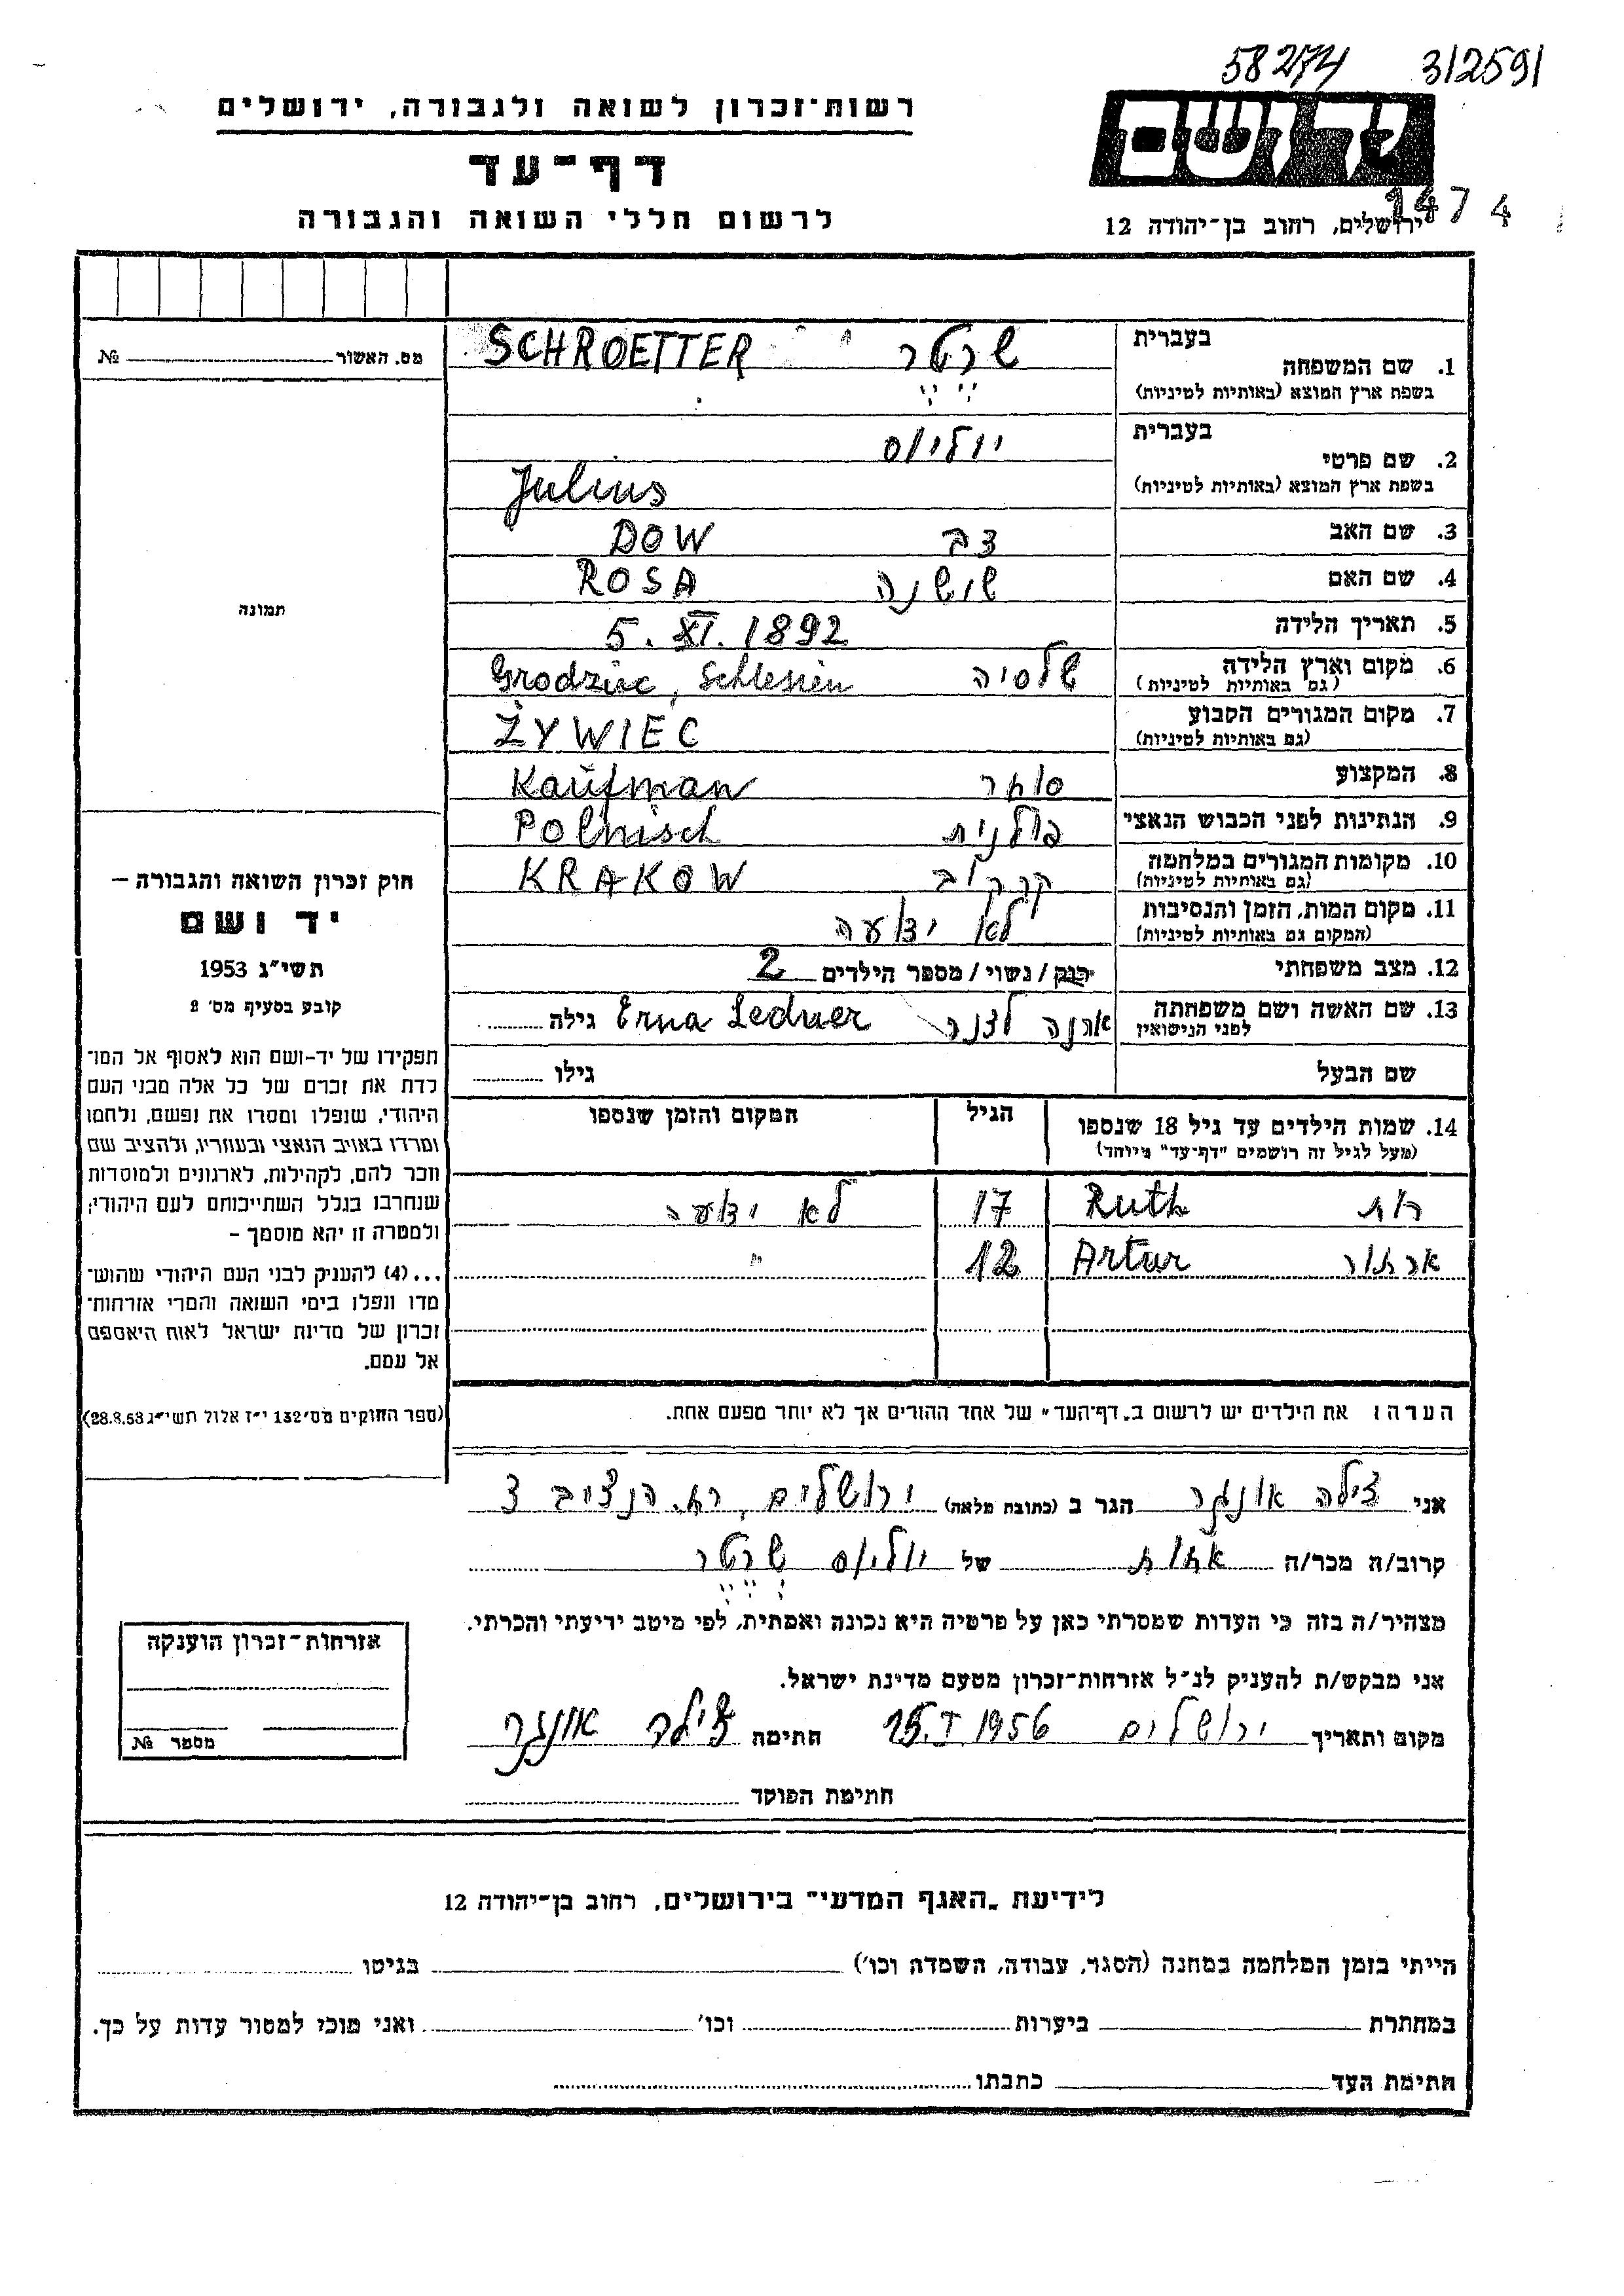 58274 312591
רשות-זכרון לשואה ולגבורה, ירושלים
יד ושם
דף-עד
1474
לרשום חללי השואה והגבורה
ירושלים, רחוב בן-יהודה 12
מס. האשור № 
1. שם המשפחה בעברית שרטר SCHROETTER
בשפת ארץ המוצא (באותיות לטיניות)
2. שם פרטי בעברית יוליוס
בשפת ארץ המוצא (באותיות לטיניות) Julius
3. שם האב DOW
4. שם האם שושנה ROSA
5. תאריך הלידה 5. XI. 1892
6. מקום וארץ הלידה שלסיה Grodziec, Schlesien
(גם באותיות לטיניות)
7. מקום המגורים הקבוע ŻYWIEC
(גם באותיות לטיניות)
8. המקצוע סוחר Kaufman
9. הנתינות לפני הכבוש הנאצי פולנית Polnisch
10. מקומות המגורים במלחמה קרקוב KRAKOW
(גם באותיות לטיניות)
11. מקום המות, הזמן והנסיבות לא ידוע
(המקום גם באותיות לטיניות)
12. מצב משפחתי רווק / נשוי / מספר הילדים 2
13. שם האשה ושם משפחתה ארנה לדנר Erna Ledner גילה
לפני הנישואין
שם הבעל גילו
14. שמות הילדים עד גיל 18 שנספו הגיל המקום והזמן שנספו
(מעל לגיל זה רושמים "דף-עד" מיוחד)
רות Ruth 17 לא ידוע
ארתור Artur 12 "
הערה: את הילדים יש לרשום ב"דף-העד" של אחד ההורים אך לא יותר מפעם אחת.
תמונה
חוק זכרון השואה והגבורה –
יד ושם
תשי"ג 1953
קובע בסעיף מס' 2
תפקידו של יד-ושם הוא לאסוף אל המו־
לדת את זכרם של כל אלה מבני העם
היהודי, שנפלו ומסרו את נפשם, נלחמו
ומרדו באויב הנאצי ובעוזריו, ולהציב שם
וזכר להם, לקהילות, לארגונים ולמוסדות
שנחרבו בגלל השתייכותם לעם היהודי;
ולמטרה זו יהא מוסמך –
...(4) להעניק לבני העם היהודי שהוש־
מדו ונפלו בימי השואה והמרי אזרחות־
זכרון של מדינת ישראל לאות היאספם
אל עמם.
(ספר החוקים מס' 132 י"ז אלול תשי"ג 28.8.53)
אני צילה אונגר הגר ב (כתובת מלאה) ירושלים, הנציב
קרוב/ה מכר/ה אחות של יוליוס שרטר
מצהיר/ה בזה כי העדות שמסרתי כאן על פרטיה היא נכונה ואמתית, לפי מיטב ידיעתי והכרתי.
אני מבקש/ת להעניק לנ"ל אזרחות-זכרון מטעם מדינת ישראל.
מקום ותאריך ירושלים 15.I.1956 חתימה צילה אונגר
חתימת הפוקד
אזרחות-זכרון הוענקה
מספר №
לידיעת "האגף המדעי" בירושלים, רחוב בן-יהודה 12
הייתי בזמן המלחמה במחנה (הסגר, עבודה, השמדה וכו') בגיטו
במחתרת ביערות וכו' ואני מוכן למסור עדות על כך.
חתימת העד כתבתו